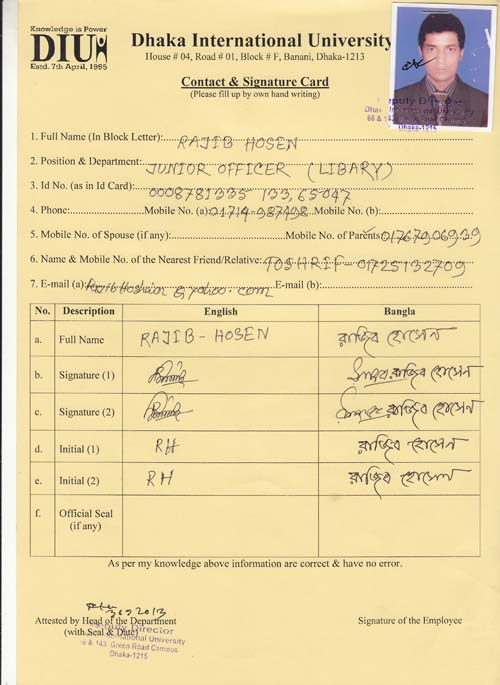 Knowledge is Power
DIU
Estd. 7th April, 1995
Dhaka International University
House # 04, Road # 01, Block # F, Banani, Dhaka-1213
Contact & Signature Card
(Please fill up by own hand writing)
Deputy Director
Dhaka International University
66 & 143, Green Road Campus
Dhaka-1215
1. Full Name (In Block Letter): RAJIB HOSEN
2. Position & Department: JUNIOR OFFICER (LIBARY)
3. Id No. (as in Id Card): 0008781335 133,65047
4. Phone: Mobile No. (a): 01714-987498 Mobile No. (b):
5. Mobile No. of Spouse (if any): Mobile No. of Parents: 01767906939
6. Name & Mobile No. of the Nearest Friend/Relative: TOSHRIF-01725132709
7. E-mail (a): @yahoo.com E-mail (b):
No. Description English Bangla
a. Full Name RAJIB-HOSEN রাজিব হোসেন
b. Signature (1) রাজিব হোসেন
c. Signature (2) রাজিব হোসেন
d. Initial (1) RH রাজিব হোসেন
e. Initial (2) RH রাজিব হোসেন
f. Official Seal
(if any)
As per my knowledge above information are correct & have no error.
Attested by Head of the Department
(with Seal & Date)
Signature of the Employee
Deputy Director
International University
66 & 143, Green Road Campus
Dhaka-1215